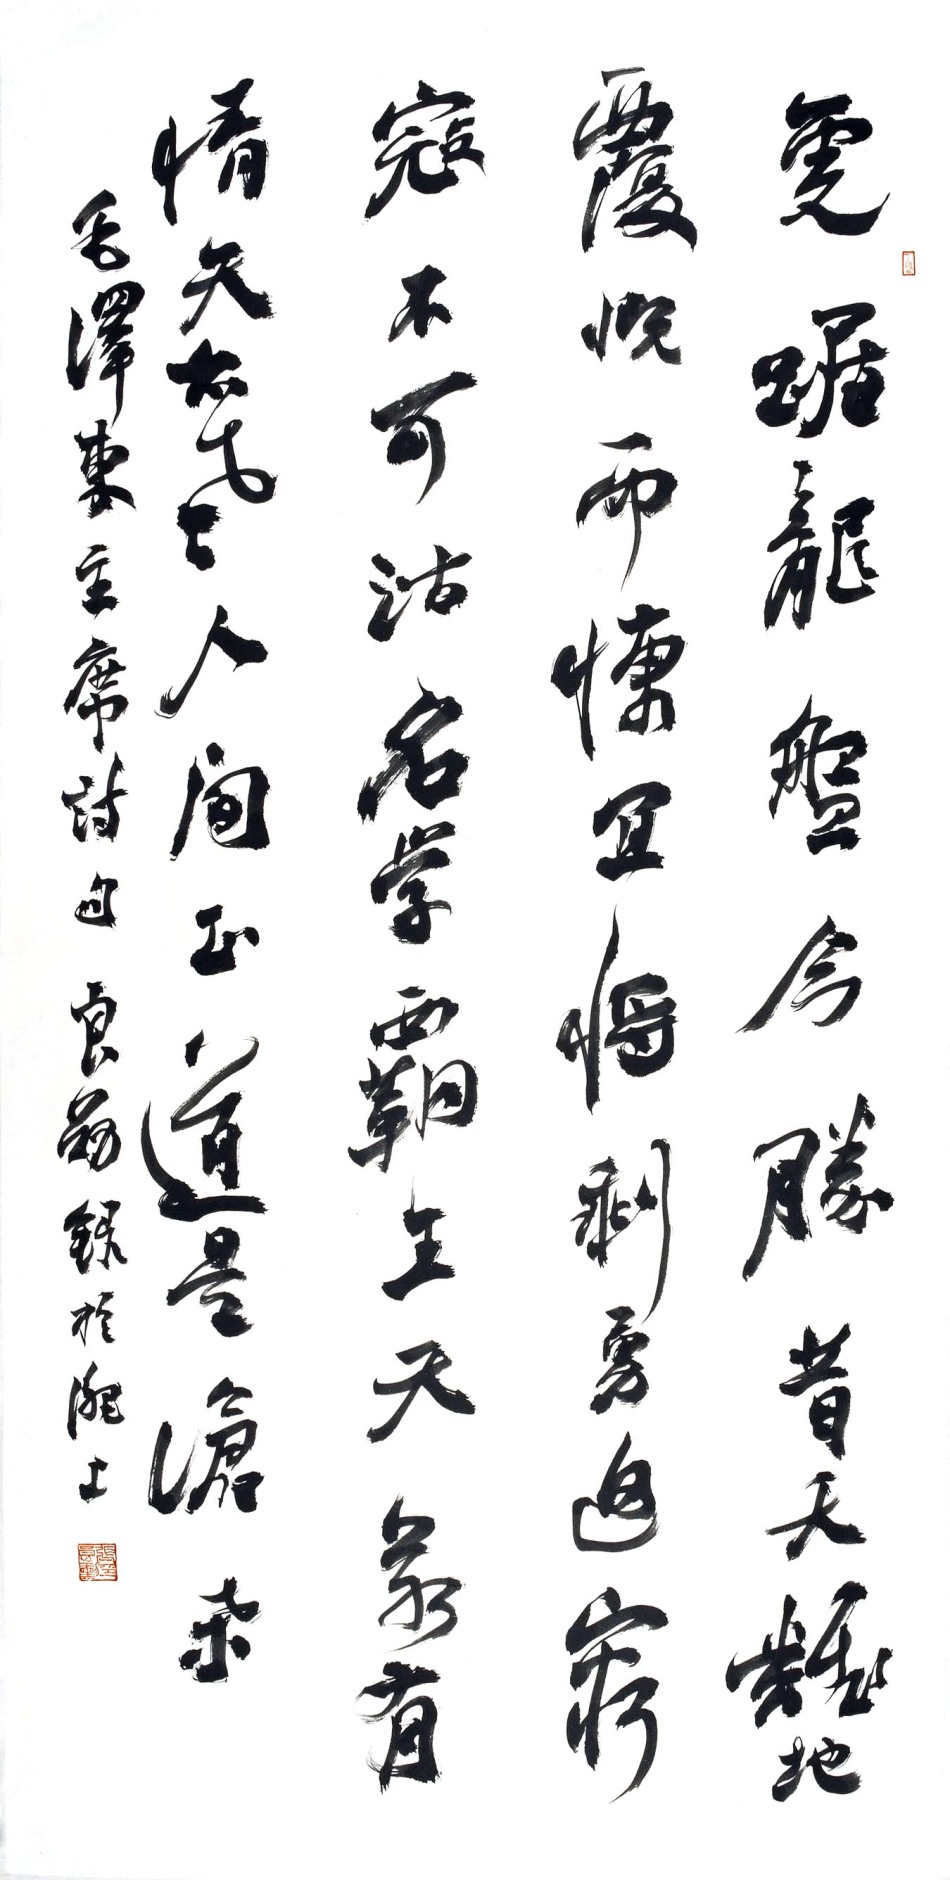 虎踞龍盤今勝昔天翻地
覆慨而慷宜將剩勇追窮
寇不可沽名学霸王天若有
情天亦老人間正道是滄桑
毛澤東主席詩句 良勛錄於淝上